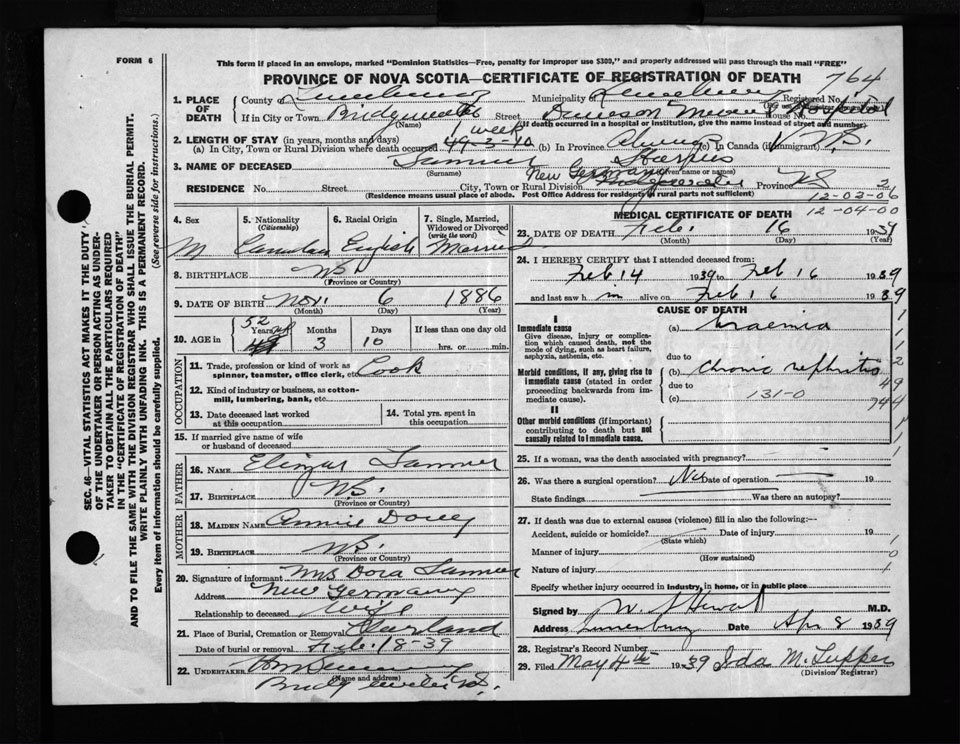 FORM 6
This form if placed in an envelope, marked "Dominion Statistics—Free, penalty for improper use $300," and properly addressed will pass through the mail "FREE"
PROVINCE OF NOVA SCOTIA—CERTIFICATE OF REGISTRATION OF DEATH 764
1. PLACE OF DEATH County of Lunenburg Municipality of Lunenburg Registered No.
If in City or Town Bridgewater Street Dawson Memorial Hospital
(Name) (If death occurred in a hospital or institution, give the name instead of street and number)
2. LENGTH OF STAY (in years, months and days) 1 week
(a) In City, Town or Rural Division where death occurred 49-3-10 (b) In Province Always (c) In Canada (if immigrant)
3. NAME OF DECEASED
(Surname) (Given name or names)
New Germany
RESIDENCE No. Street City, Town or Rural Division Bridgewater Province NS
(Residence means usual place of abode. Post Office Address for residents in rural parts not sufficient)
12-02-06
12-04-00
4. Sex M
5. Nationality (Citizenship) Canadian
6. Racial Origin English
7. Single, Married, Widowed or Divorced (write the word) Married
8. BIRTHPLACE NS
(Province or Country)
9. DATE OF BIRTH Nov. 6 1886
(Month) (Day) (Year)
10. AGE in 52 Years 49 Months 3 Days 10 If less than one day old hrs. or min.
OCCUPATION
11. Trade, profession or kind of work as spinner, teamster, office clerk, etc. Cook
12. Kind of industry or business, as cotton-mill, lumbering, bank, etc.
13. Date deceased last worked at this occupation
14. Total yrs. spent in this occupation
15. If married give name of wife or husband of deceased
FATHER
16. NAME
17. BIRTHPLACE N.S.
(Province or Country)
MOTHER
18. MAIDEN NAME Annie
19. BIRTHPLACE N.S.
(Province or Country)
20. Signature of informant Mrs Dora
Address New Germany
Relationship to deceased Wife
21. Place of Burial, Cremation or Removal
Date of burial or removal Feb. 18-39
22. UNDERTAKER
(Name and address)
Bridgewater N.S.
MEDICAL CERTIFICATE OF DEATH
23. DATE OF DEATH Feb. 16 1939
(Month) (Day)
24. I HEREBY CERTIFY that I attended deceased from:
Feb 14 1939 to Feb 16 1939
and last saw him alive on Feb 16 1939
CAUSE OF DEATH
I
Immediate cause (a) Uraemia
Give disease, injury or complication which caused death, not the mode of dying, such as heart failure, asphyxia, asthenia, etc.
due to
Morbid conditions, if any, giving rise to immediate cause (stated in order proceeding backwards from immediate cause). (b) Chronic nephritis
due to
(c) 131-0
II
Other morbid conditions (if important) contributing to death but not causally related to immediate cause.
25. If a woman, was the death associated with pregnancy?
26. Was there a surgical operation? No Date of operation 19
State findings Was there an autopsy?
27. If death was due to external causes (violence) fill in also the following:—
Accident, suicide or homicide? Date of injury 19
(State which)
Manner of injury
(How sustained)
Nature of injury
Specify whether injury occurred in industry, in home, or in public place
Signed by M.D.
Address Lunenburg Date Apr 8 1939
28. Registrar's Record Number
29. Filed May 4th 1939 Ida M. Tupper
(Division Registrar)
SEC. 46—VITAL STATISTICS ACT MAKES IT THE DUTY
OF THE UNDERTAKER OR PERSON ACTING AS UNDER-
TAKER TO OBTAIN ALL THE PARTICULARS REQUIRED
IN THE "CERTIFICATE OF REGISTRATION OF DEATH"
AND TO FILE THE SAME WITH THE DIVISION REGISTRAR WHO SHALL ISSUE THE BURIAL PERMIT.
WRITE PLAINLY WITH UNFADING INK. THIS IS A PERMANENT RECORD.
Every item of information should be carefully supplied. (See reverse side for instructions.)